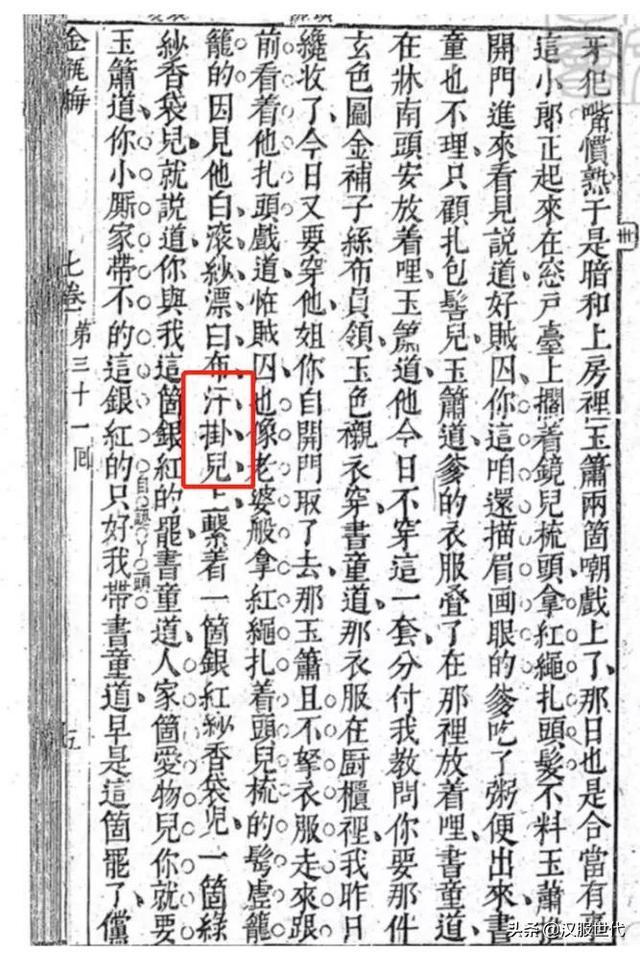 牙犯嘴慣熟于是暗和上房裡玉簫兩箇嘲戲上了那日也是合當有事
這小郎正起來在窓戸臺上擱着鏡兒梳頭拿紅繩扎頭髮不料玉簫推
開門進來看見說道好賊囚你這咱還描眉画眼的爹吃了粥便出來書
童也不理只顧扎包髻兒玉簫道爹的衣服叠了在那裡放着哩書童道
在牀南頭安放着哩玉簫道他今日不穿這一套分付我教問你要那件
玄色圓金補子絲布員領玉色襯衣穿書童道那衣服在厨櫃裡我昨日
纔收了今日又要穿他姐你自開門取了去那玉簫且不拏衣服走來跟
前看着他扎頭戲道怪賊囚也像老婆般拿紅繩扎着頭兒梳的髩虛籠
籠的因見他白滚紗漂白布汗掛兒上繫着一箇銀紅紗香袋兒一箇綠
紗香袋兒就説道你與我這箇銀紅的罷書童道人家箇愛物兒你就要
玉簫道你小厮家帶不的這銀紅的只好我帶書童道早是這箇罷了儻
金瓶梅
七卷 第三十一回
五
头条 @汉服世代